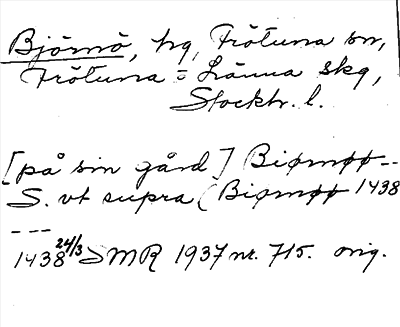 Björnö, hg, Frötuna sn,
Frötuna = Länna skg,
Stockh. l.
[på sin gård] Biørnøø--
S. vt supra (Biørnøø 1438
---
1438 24/3 SMR 1937 nr. 715. orig.